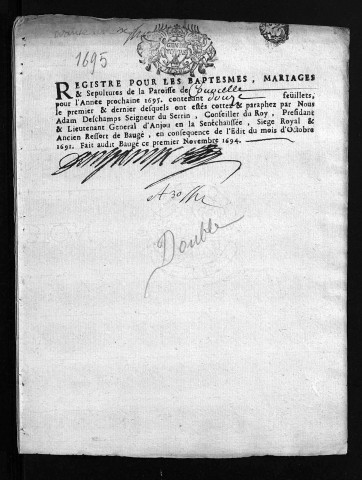 1695
REGISTRE POUR LES BAPTESMES, MARIAGES
& Sepultures de la Paroisse de
pour l'Année prochaine 1695. contenant douze feuillets,
le premier & dernier desquels ont estés cottez & paraphez par Nous
Adam Deschamps Seigneur du Serrin, Conseiller du Roy, President
& Lieutenant General d'Anjou en la Senéchaussée, Siege Royal &
Ancien Ressort de Baugé, en consequence de l'Edit du mois d'Octobre
1691. Fait audit Baugé ce premier Novembre 1694.
Double